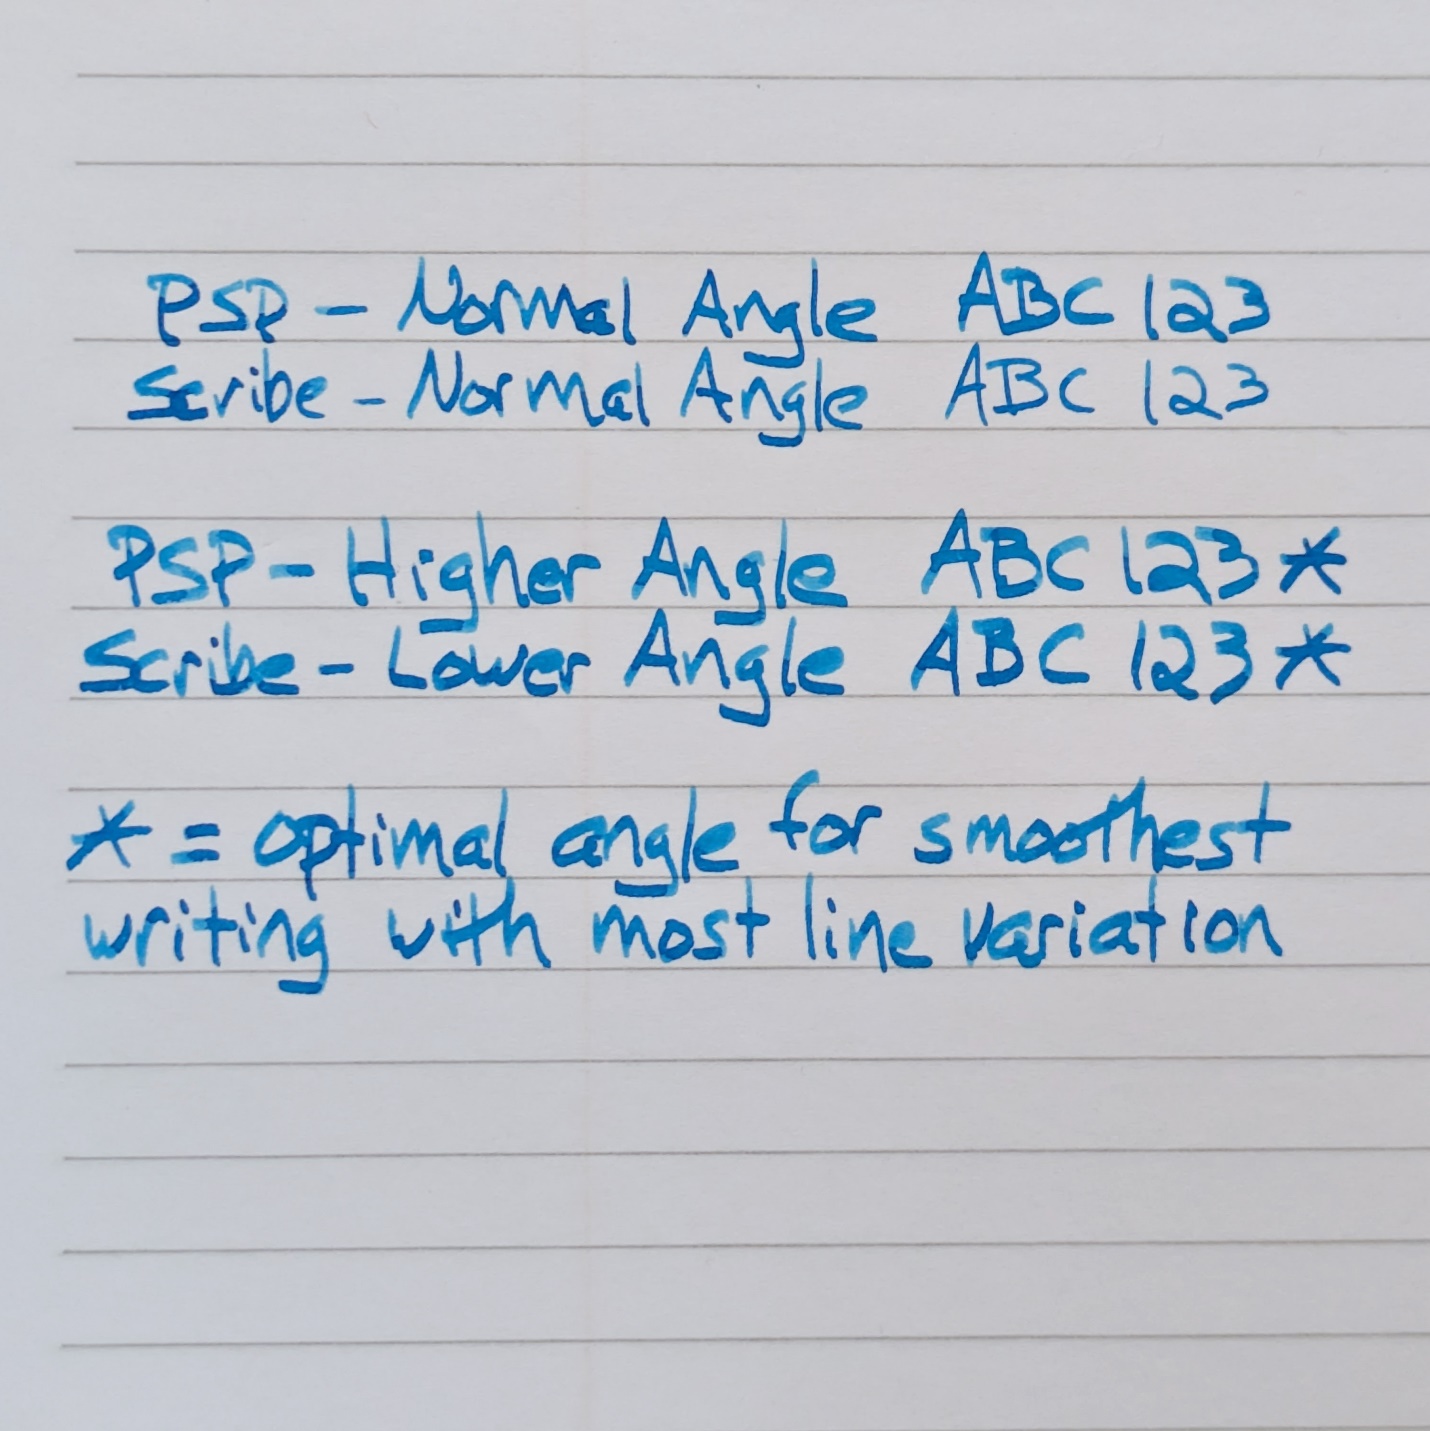 PSP - Normal Angle ABC 123
Scribe - Normal Angle ABC 123
PSP - Higher Angle ABC 123 *
Scribe - Lower Angle ABC 123 *
* = optimal angle for smoothest
writing with most line variation